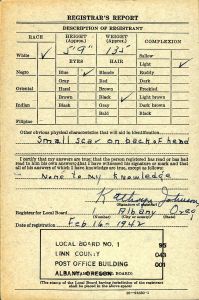 REGISTRAR'S REPORT
DESCRIPTION OF REGISTRANT
RACE HEIGHT (Approx.) WEIGHT (Approx.) COMPLEXION
5'9" 135
White ✓ EYES HAIR Sallow
Light ✓
Negro Blue ✓ Blonde Ruddy
Gray Red Dark
Oriental Hazel Brown Freckled
Brown Black ✓ Light brown
Indian Black Gray Dark brown
Bald Black
Filipino
Other obvious physical characteristics that will aid in identification
Small scar on back of head
I certify that my answers are true; that the person registered has read or has had
read to him his own answers; that I have witnessed his signature or mark and that
all of his answers of which I have knowledge are true, except as follows:
None to my Knowledge
Kathryn Johnson
(Signature of registrar)
Registrar for Local Board Albany Oreg
(Number) (City or county) (State)
Feb 16-1942
LOCAL BOARD NO. 1 95
LINN COUNTY 043
POST OFFICE BUILDING 001
ALBANY, OREGON
(The stamp of the Local Board having jurisdiction of the registrant
shall be placed in the above space)